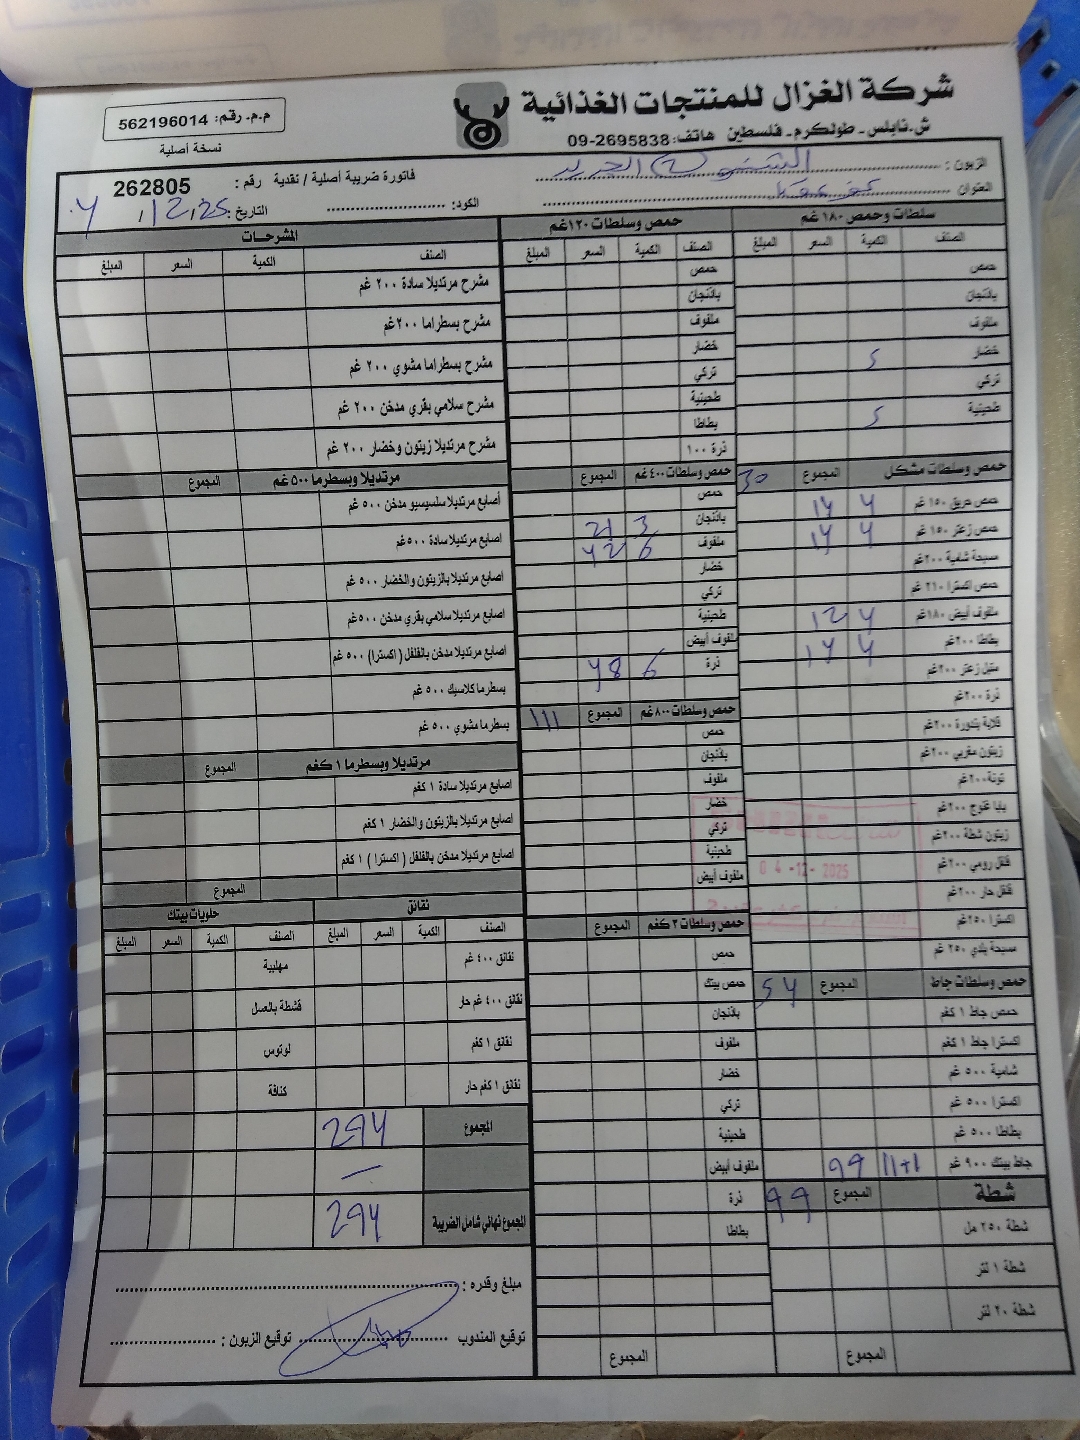 شركة الغزال للمنتجات الغذائية
ش.نابلس - طولكرم - فلسطين هاتف: 09-2695838
م.م. رقم: 562196014
نسخة أصلية
الزبون:
العنوان
فاتورة ضريبة أصلية / نقدية رقم: 262805
الكود: التاريخ:
سلطات وحمص ١٨٠ غم
الصنف الكمية السعر المبلغ
حمص
باذنجان
ملفوف
خضار 5
تركي
طحينية 5
حمص وسلطات مشكل المجموع 30
حمص حريق ١٥٠ غم
حمص زعتر ١٥٠ غم
مسبحة شامية ٢٠٠غم
حمص اكسترا ٢١٠ غم
ملفوف أبيض ١٨٠غم
بطاطا ٢٠٠غم
متبل زعتر ٢٠٠غم
ذرة ٢٠٠غم
قلاية بندورة ٢٠٠غم
زيتون مغربي ٢٠٠غم
تونة ٢٠٠غم
بابا غنوج ٢٠٠غم
زيتون شطة ٢٠٠غم
فلفل رومي ٢٠٠غم
فلفل حار ٢٠٠غم
اكسترا ٢٥٠غم
مسبحة بلدي ٢٥٠ غم
حمص وسلطات جاط المجموع 54
حمص جاط ١ كغم
اكسترا جاط ١ كغم
شامية ٥٠٠ غم
اكسترا ٥٠٠ غم
بطاطا ٥٠٠ غم
جاط بيتك ٩٠٠ غم 11+1 99
شطة المجموع 99
شطة ٢٥٠ مل
شطة ١ لتر
شطة ٢٠ لتر
المجموع
حمص وسلطات ١٢٠غم
الصنف الكمية السعر المبلغ
حمص
باذنجان
ملفوف
خضار
تركي
طحينية
بطاطا
ذرة ١٠٠
حمص وسلطات ٤٠٠ غم المجموع
حمص
باذنجان 3 21
ملفوف 6 42
خضار
تركي
طحينية
ملفوف أبيض
ذرة 6 48
حمص وسلطات ٨٠٠ غم المجموع 111
حمص
باذنجان
ملفوف
خضار
تركي
طحينية
ملفوف أبيض
04-12-2025
حمص وسلطات ٣ كغم المجموع
حمص
حمص بيتك
باذنجان
ملفوف
خضار
تركي
طحينية
ملفوف أبيض
ذرة
بطاطا
المجموع
المشرحات
الصنف الكمية السعر المبلغ
مشرح مرتديلا سادة ٢٠٠ غم
مشرح بسطراما ٢٠٠غم
مشرح بسطراما مشوي ٢٠٠ غم
مشرح سلامي بقري مدخن ٢٠٠ غم
مشرح مرتديلا زيتون وخضار ٢٠٠ غم
مرتديلا وبسطرما ٥٠٠ غم المجموع
أصابع مرتديلا سلسيسيو مدخن ٥٠٠ غم
اصابع مرتديلا سادة ٥٠٠غم
اصابع مرتديلا بالزيتون والخضار ٥٠٠ غم
اصابع مرتديلا سلامي بقري مدخن ٥٠٠غم
اصابع مرتديلا مدخن بالفلفل (اكسترا) ٥٠٠ غم
بسطرما كلاسيك ٥٠٠ غم
بسطرما مشوي ٥٠٠ غم
مرتديلا وبسطرما ١ كغم المجموع
اصابع مرتديلا سادة ١ كغم
اصابع مرتديلا بالزيتون والخضار ١ كغم
اصابع مرتديلا مدخن بالفلفل (اكسترا) ١ كغم
المجموع
نقانق
الصنف الكمية السعر المبلغ
نقانق ٤٠٠ غم
نقانق ٤٠٠ غم حار
نقانق ١ كغم
نقانق ١ كغم حار
حلويات بيتك
الصنف الكمية السعر المبلغ
مهلبية
قشطة بالعسل
لوتوس
كنافة
المجموع 294
المجموع نهائي شامل الضريبة 294
مبلغ وقدره:
توقيع المندوب توقيع الزبون: